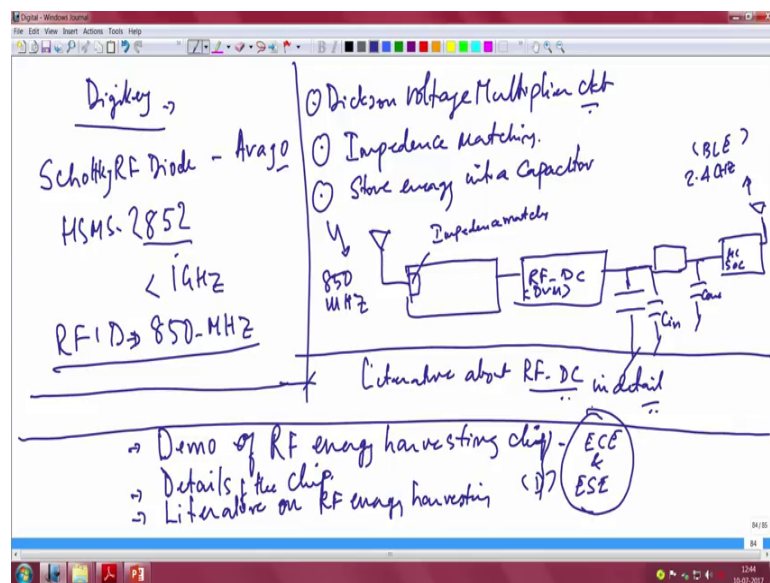 Digital - Windows Journal
File Edit View Insert Actions Tools Help
Digikey →
Schottky RF Diode - Avago
HSMS-2852
< 1GHZ
RFID → 850-MHZ
Dickson Voltage Multiplier ckt
Impedence Matching.
Store energy into a Capacitor
(BLE)
2.4 GHZ
Impedence match
850
MHZ
RF-DC
(DVM)
SOC
Cin
Literature about RF-DC in detail
→ Demo of RF energy harvesting chip - ECE
&
ESE
→ Details of the chip.
(1)
→ Literature on RF energy harvesting
84/86
84
12:44
10-07-2017